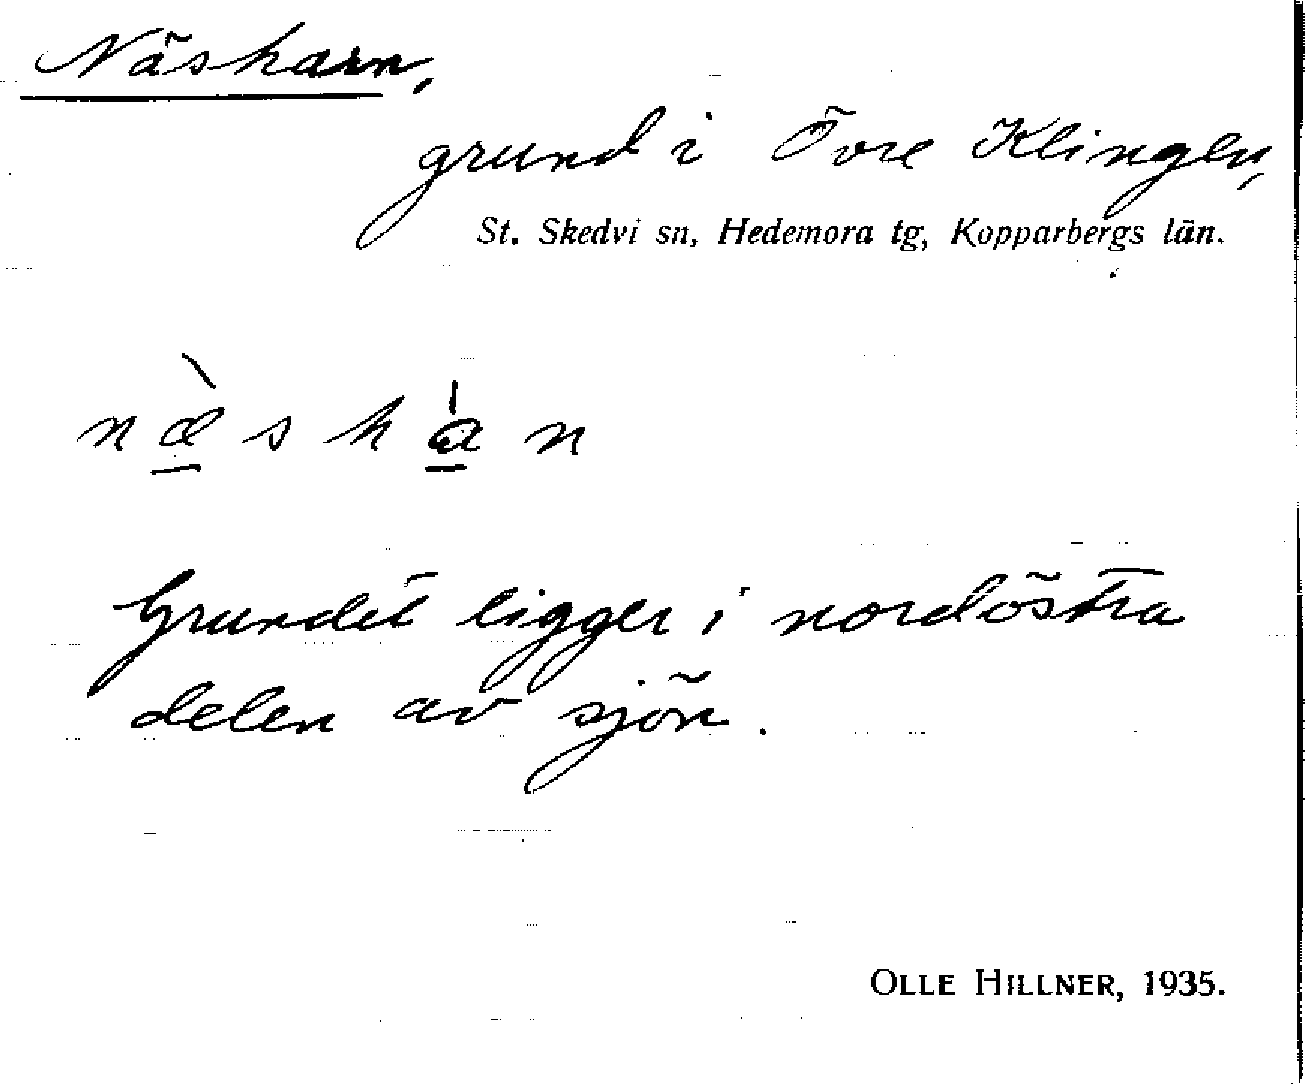 Näsharn,
grund i Övre Klingen,
St. Skedvi sn, Hedemora tg, Kopparbergs län.
næ̀sha̍n
Grundet ligger i nordöstra
delen av sjön.
OLLE HILLNER, 1935.